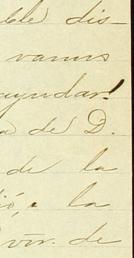 ble dis-
vamos
ayudar!
a de D.
de la
ió, a la
vir. de